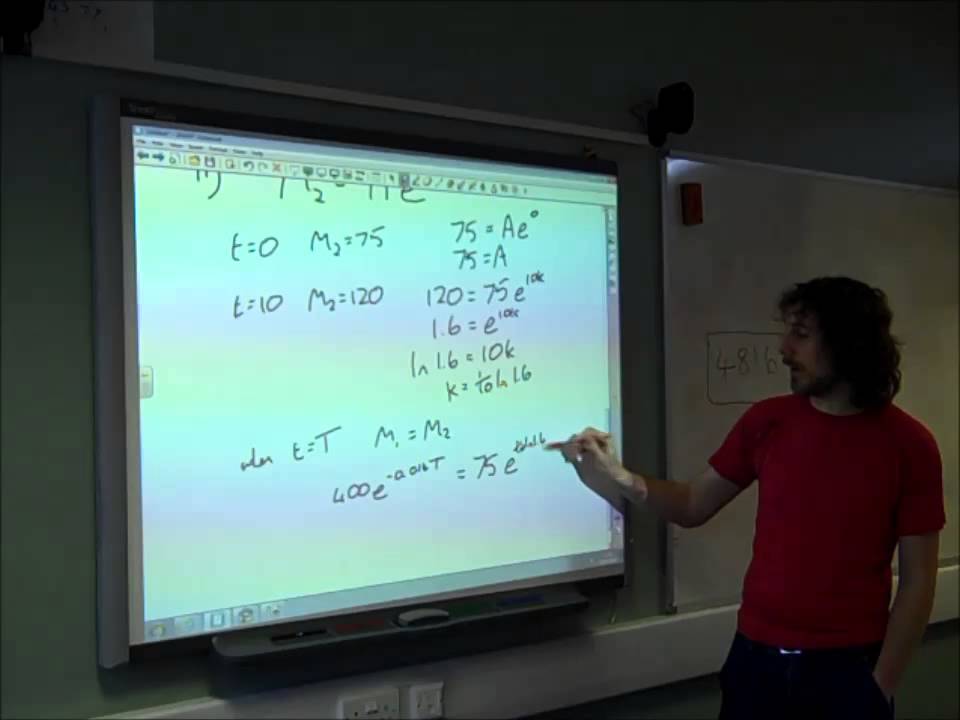 t=0 M₂=75 75=Ae⁰
75=A
t=10 M₂=120 120=75e^10k
1.6=e^10k
ln 1.6=10k
k=1/10 ln 1.6
when t=T M₁=M₂
400e^-0.016T = 75e^1/10 ln 1.6
4816